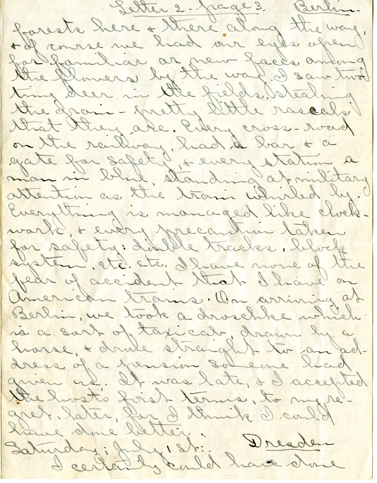 Letter 2 - page 3. Berlin.
forests here & there along the way,
& of course we had our eyes open
for familiar or new faces among
the flowers by the way. I saw two
tiny deer in the fields, stealing
the grain - pretty little rascals
that they are. Every cross-road
on the railway, had a bar, & a
gate for safety, & every station a
man in blue, standing at military
attention as the train whirled by.
Everything is managed like clock-
work, & every precaution taken
for safety; double tracks, block
system, etc. etc. I have none of the
fear of accident that I have on
American trains. On arriving at
Berlin, we took a droschke which
is a sort of taxicab drawn by a
horse, & drove straight to an ad-
dress of a pension someone had
given us. It was late, & I accepted
the hosts first terms, to my re-
gret, later, for I think I could
have done better.
Saturday, July 1st. Dresden
I certainly could have done